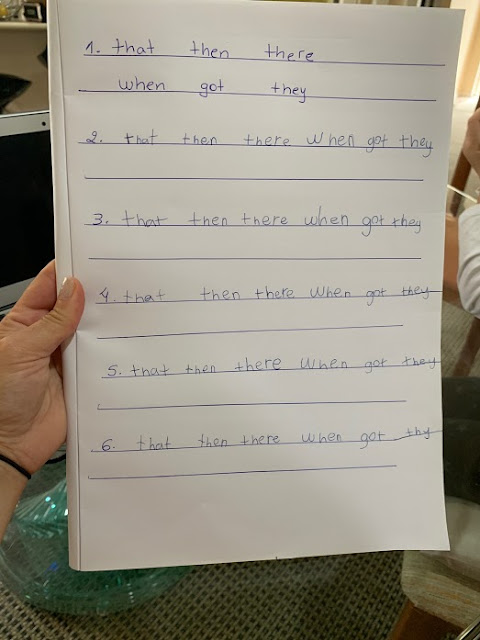 1. that then there
when got they
2. that then there when got they
3. that then there when got they
4. that then there when got they
5. that then there when got they
6. that then there when got thy